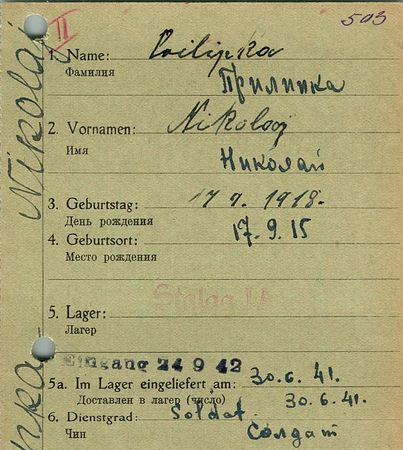 II
503
1. Name: Prilipka
Фамилия
Прилипка
2. Vornamen: Nikolaj
Имя
Николай
3. Geburtstag: 17 9. 1918.
День рождения
17.9.15
4. Geburtsort:
Место рождения
Stalag IA
5. Lager:
Лагер
Eingang 24 9 42
5a. Im Lager eingeliefert am: 30.6.41.
Доставлен в лагер (число) 30.6.41.
6. Dienstgrad: Soldat.
Чин Солдат
Nikolaj